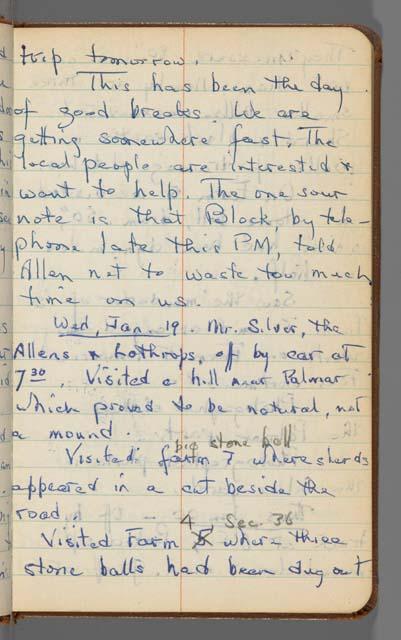 trip tomorrow.
This has been the day
of good breaks. We are
getting somewhere fast. The
local people are interested &
want to help. The one sour
note is that Block, by tele-
phone late this PM, told
Allen not to waste too much
time on us.
Wed, Jan. 19. Mr. Silver, the
Allens & Lothrops, off by car at
7 30. Visited a hill near Palmar
which proved to be natural, not
a mound.
big stone ball
Visited farm 7 where sherds
appeared in a cut beside the
road.
4 Sec. 36
Visited Farm 5 where three
stone balls had been dug out